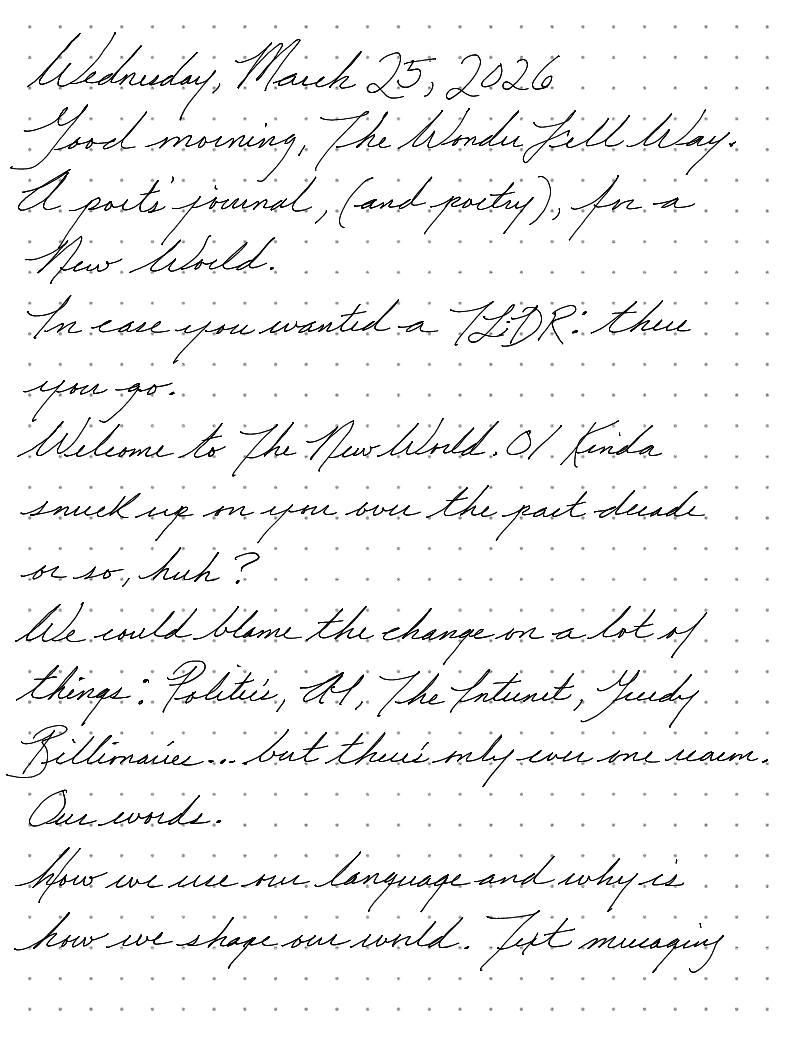 Wednesday, March 25, 2026
Good morning, The Wonder Fell Way.
A poets' journal, (and poetry), for a
New World.
In case you wanted a TL;DR: there
you go.
Welcome to The New World. Ol Kinda
snuck up on you over the past decade
or so, huh?
We could blame the change on a lot of
things: Politics, AI, The Internet, Greedy
Billionaires... but there's only ever one reason.
Our words.
How we use our language and why is
how we shape our world. Text messaging